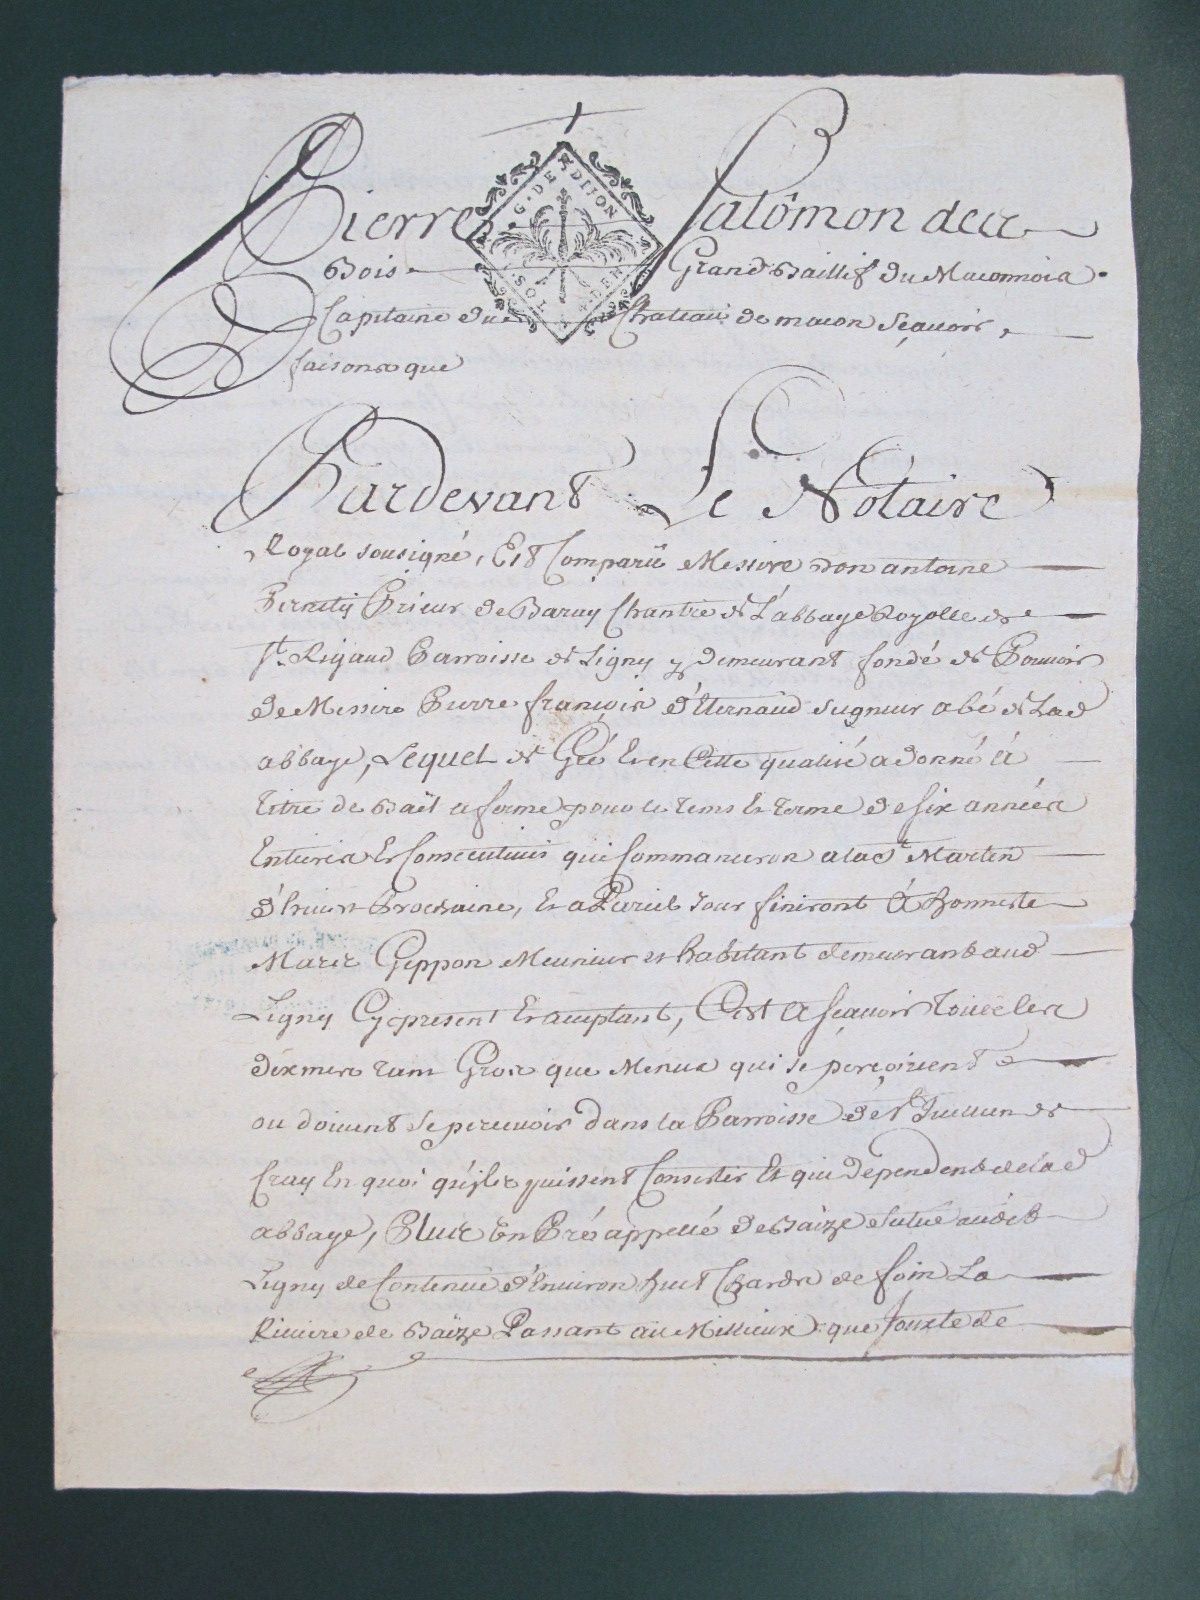 G. DE DIJON
SOL DEN
Pierre Palômon des
Bois Grand Baillif du Maconnois
Capitaine du Chateau de macon Sçavoir
faisons que
Pardevant Le Notaire
Royal sousigné, Est Comparû Messire don antoine
Prieur de Baruy Chantre de L'abbaye Royolle de
St. Rigaud Parroisse de Ligny y demeurant fondé de Pouvoir
de Messire Pierre françois d'Eternaud Seigneur abé de Lad
abbaye, Lequel de Gré Et en Cette qualité a donné à
titre de Bail a ferme pour le tems Et terme de six années
Entieres Et Consecutives qui Commanceron a la St Martin
d'hiver Prochaine, Et a Pareil Jour finiront à honneste
Marc Geppon Meunier et habitant demeurant aud
Ligny Cy present Et aceptant, C'est a sçavoir touttes les
dixmes tant Gros que Menus qui se perçoivent
ou doivent se percevoir dans la Parroisse de St Jullien de
Cray En quoi qu'ils puissent Consister Et qui dependent de lad
abbaye, Plus Un Pré appellé de Baize situé audit
Ligny de Contenue d'Environ huit Chards de foin La
Riviere de Baize Passant au Millieux que Jouxte de